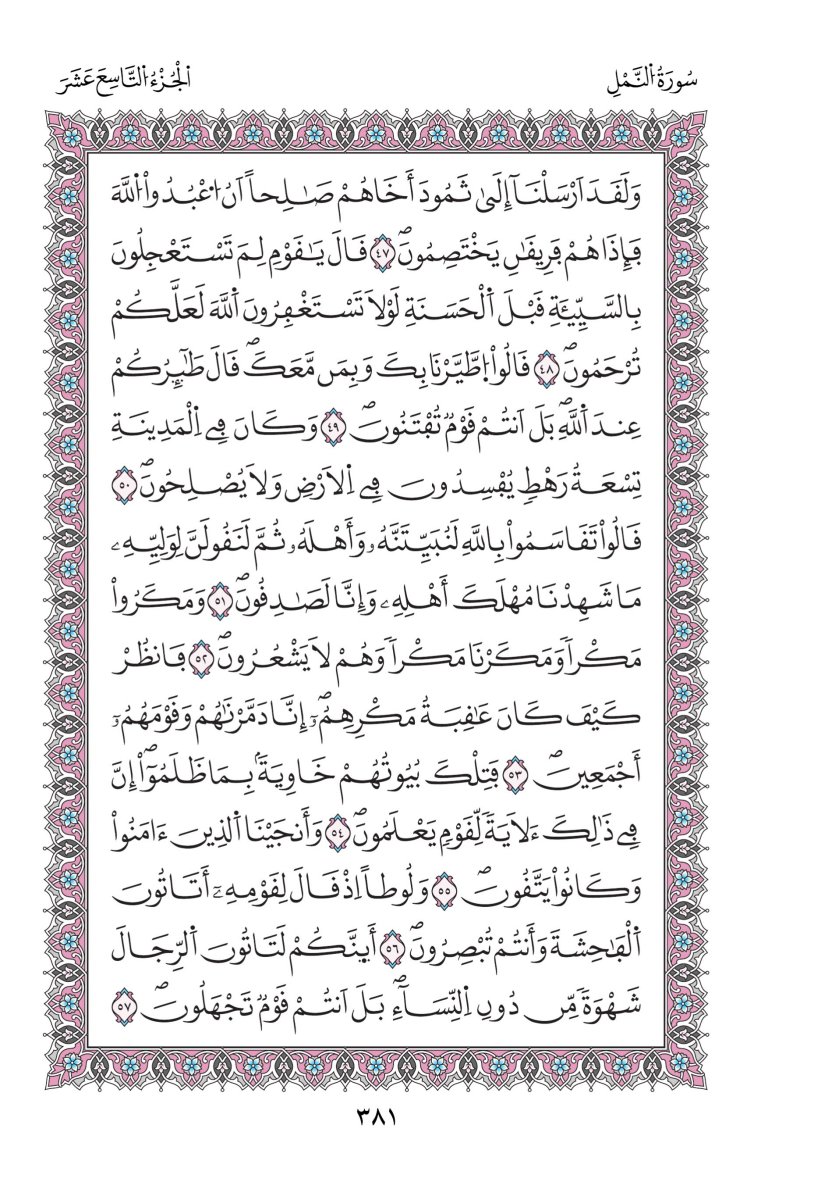 سُورَةُ اُ۬لنَّمْلِ
اَ۬لْجُزْءُ اُ۬لتَّاسِعَ عَشَرَ
وَلَقَدَ اَرْسَلْنَآ إِلَىٰ ثَمُودَ أَخَاهُمْ صَٰلِحاً اَنُ اُ۟عْبُدُواْ اُ۬للَّهَ
فَإِذَا هُمْ فَرِيقَٰنِ يَخْتَصِمُونَۖ ٤٧ قَالَ يَٰقَوْمِ لِمَ تَسْتَعْجِلُونَ
بِالسَّيِّئَةِ قَبْلَ اَ۬لْحَسَنَةِ لَوْلَا تَسْتَغْفِرُونَ اَ۬للَّهَ لَعَلَّكُمْ
تُرْحَمُونَۖ ٤٨ قَالُواْ اُ۪طَّيَّرْنَا بِكَ وَبِمَن مَّعَكَۖ قَالَ طَٰٓئِرُكُمْ
عِندَ اَ۬للَّهِۖ بَلَ اَنتُمْ قَوْمٞ تُفْتَنُونَۖ ٤٩ وَكَانَ فِے اِ۬لْمَدِينَةِ
تِسْعَةُ رَهْطٖ يُفْسِدُونَ فِے اِ۬لَارْضِ وَلَا يُصْلِحُونَۖ ٥٠
قَالُواْ تَقَاسَمُواْ بِاللَّهِ لَنُبَيِّتَنَّهُۥ وَأَهْلَهُۥ ثُمَّ لَنَقُولَنَّ لِوَلِيِّهِۦ
مَا شَهِدْنَا مُهْلَكَ أَهْلِهِۦ وَإِنَّا لَصَٰدِقُونَۖ ٥١ وَمَكَرُواْ
مَكْراٗ وَمَكَرْنَا مَكْراٗ وَهُمْ لَا يَشْعُرُونَۖ ٥٢ فَانظُرْ
كَيْفَ كَانَ عَٰقِبَةُ مَكْرِهِمُۥٓۖ إِنَّا دَمَّرْنَٰهُمْ وَقَوْمَهُمُۥٓ
أَجْمَعِينَۖ ٥٣ فَتِلْكَ بُيُوتُهُمْ خَاوِيَةَۢ بِمَا ظَلَمُوٓاْۖ إِنَّ
فِے ذَٰلِكَ ءَلَايَةٗ لِّقَوْمٖ يَعْلَمُونَۖ ٥٤ وَأَنجَيْنَا اَ۬لذِينَ ءَامَنُواْ
وَكَانُواْ يَتَّقُونَۖ ٥٥ وَلُوطاً اِذْ قَالَ لِقَوْمِهِۦٓ أَتَاتُونَ
اَ۬لْفَٰحِشَةَ وَأَنتُمْ تُبْصِرُونَۖ ٥٦ أَئِنَّكُمْ لَتَاتُونَ اَ۬لرِّجَالَ
شَهْوَةٗ مِّن دُونِ اِ۬لنِّسَآءِۖ بَلَ اَنتُمْ قَوْمٞ تَجْهَلُونَۖ ٥٧
٣٨١